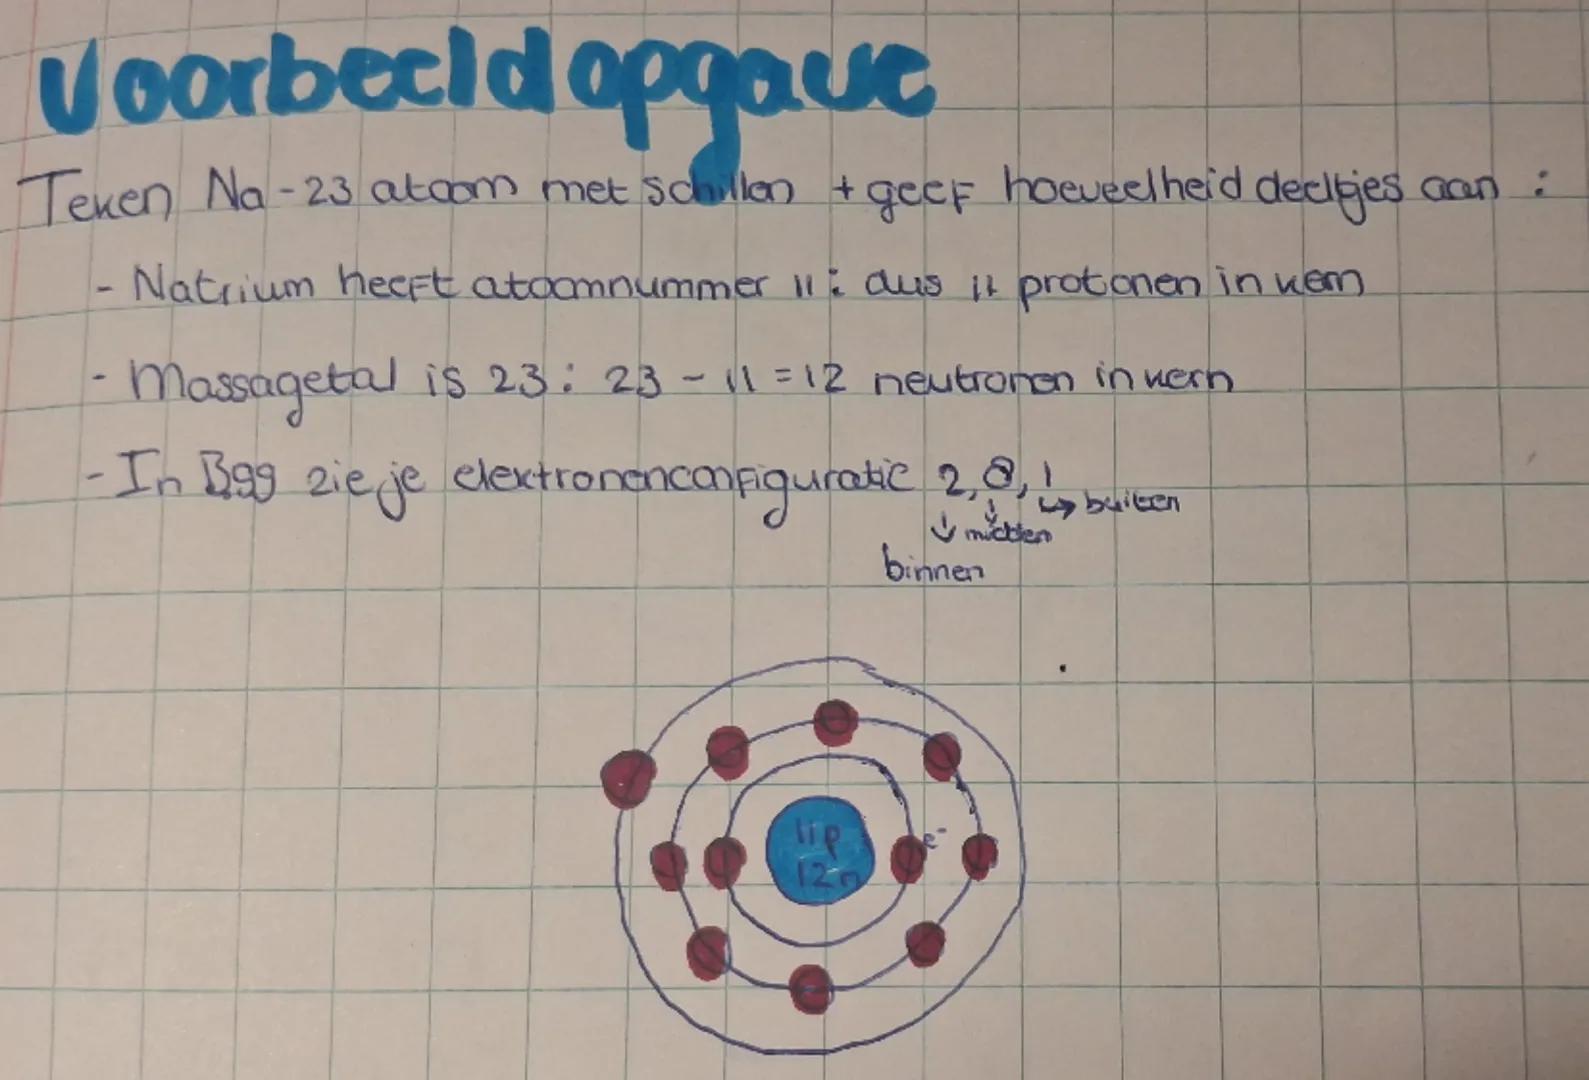 Voorbeeldopgave
Teken Na-23 atoom met schillen + geef hoeveelheid deeltjes aan :
- Natrium heeft atoomnummer 11 : dus 11 protonen in kern
- Massagetal is 23 : 23 - 11 = 12 neutronen in kern
- In B99 zie je elektronenconfiguratie 2, 8, 1
↳ buiten
↓ ↓ midden
binnen
11p
e-
12n